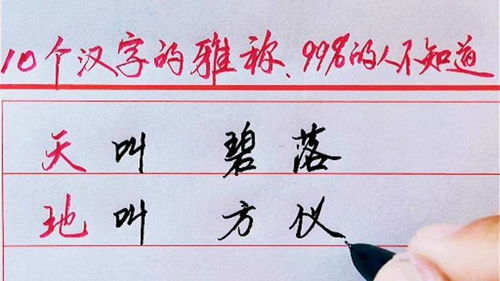 10个汉字的雅称、99%的人不知道
天叫 碧落
地叫 方仪